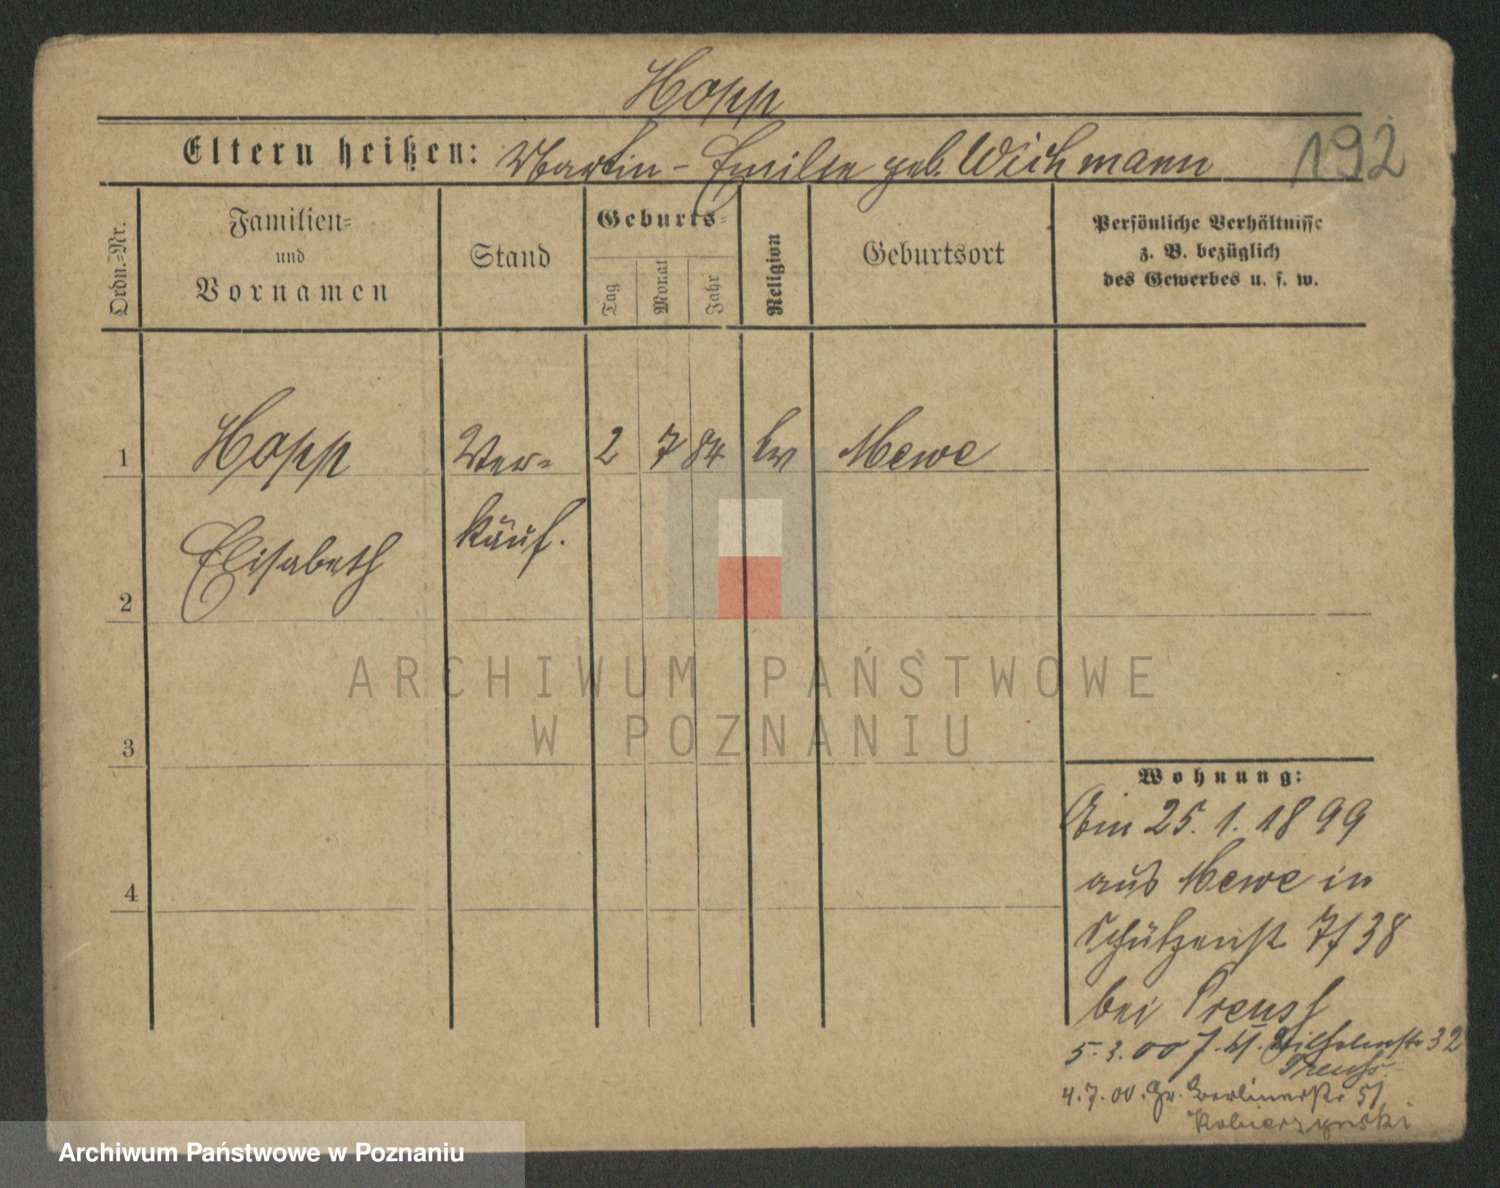 Hopp
Eltern heißen: Martin - Emilie geb. Wichmann 192
Ordn.-Nr.
Familien-
und
Vornamen
Stand
Geburts-
Tag
Monat
Jahr
Religion
Geburtsort
Persönliche Verhältnisse
z. B. bezüglich
des Gewerbes u. s. w.
1 Hopp Ver- 2 7 84 ev Mewe
Elisabeth käuf.
2
ARCHIWUM PAŃSTWOWE
W POZNANIU
3
Wohnung:
25. 1. 1899
4 aus Mewe in
Schützenstr 7/38
bei Preuss
5.3.00 Wilhelmstr 32
Preuss
4.7.00. Gr. Berlinerstr 51
Kobierzynski
Archiwum Państwowe w Poznaniu